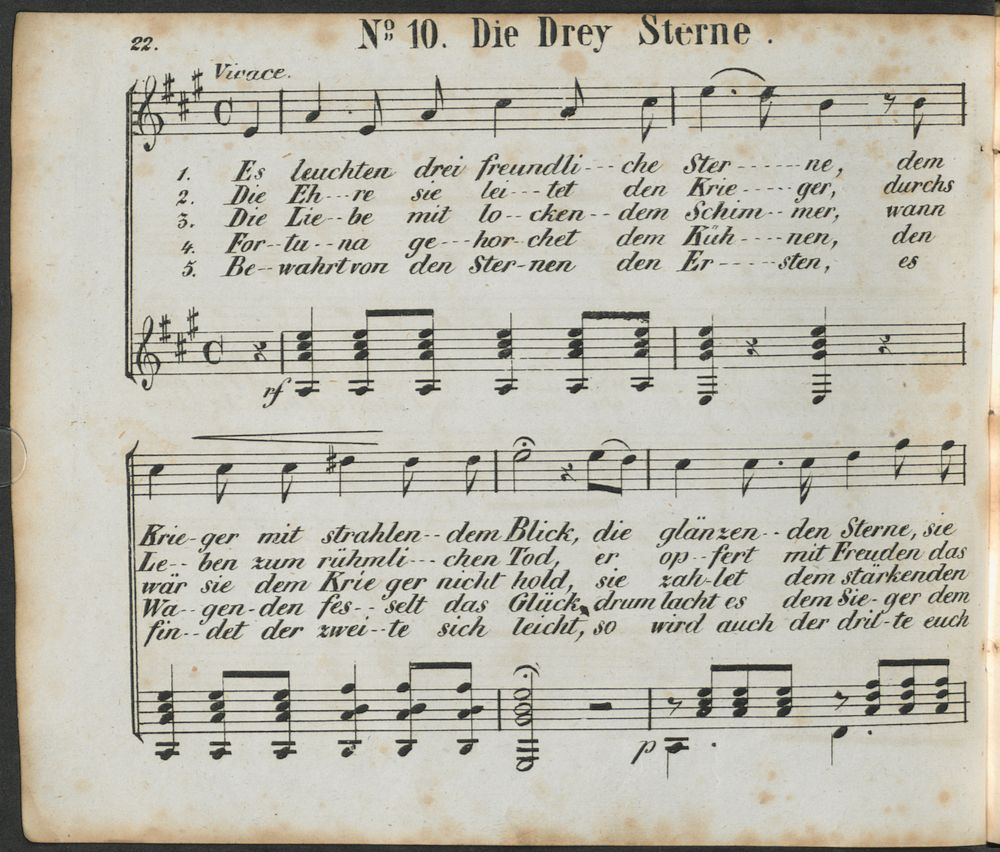 22.
No 10. Die Drey Sterne.
Vivace.
1. Es leuchten drei freundli---che Ster-----ne, dem
2. Die Eh---re sie lei---tet den Krie-----ger, durchs
3. Die Lie--be mit lo--cken--dem Schim--mer, wann
4. For-tu--na ge---hor-chet dem Küh----nen, den
5. Be--wahrt von den Ster-nen den Er-----sten, es
rf
Krie-ger mit strahlen--dem Blick, die glänzen--den Sterne, sie
Le--ben zum rühmli---chen Tod, er op--fert mit Freuden das
wär sie dem Krie ger nicht hold, sie zah-let dem stärkenden
Wa--gen-den fes--selt das Glück, drum lacht es dem Sie-ger dem
fin--det der zwei--te sich leicht, so wird auch der drit-te euch
p